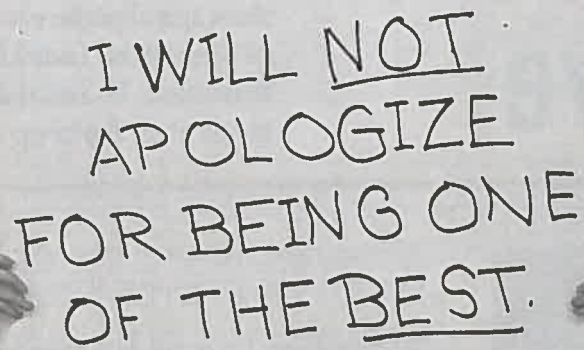 I WILL NOT
APOLOGIZE
FOR BEING ONE
OF THE BEST.